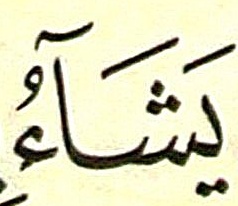 يَشَآءُ